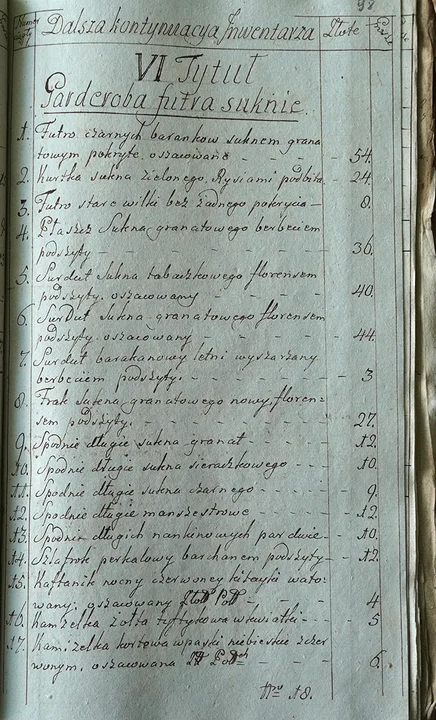 98
Dalsza kontynuacya Inwentarza Złote
VI Tytuł
Garderoba futra suknie.
1. Futro czarnych barankow suknem grana
towym pokryte oszacowane - - - 54.
2. Kurtka sukna zielonego, Rysiami podbita - 24.
3. Futro stare wilki bez żadnego pokrycia - 8.
4. Płaszcz Sukna granatowego berbeciem
podszyty - - - - 36.
5. Surdut Sukna tabaczkowego florensem
podszyty. oszacowany - - - - 40.
6. Surdut sukna granatowego florensem
podszyty. oszacowany - - - - 44.
7. Surdut barakanowy letni wyszarzany
berbeciem podszyty. - - - - 3
8. Frak sukna granatowego nowy floren=
sem podszyty. - - - - 27.
9. Spodnie długie sukna granat - - - 12.
10. Spodnie długie sukna sieraczkowego - - - 10.
11. Spodnie długie sukna czarnego - - - - 9.
12. Spodnie długie manszestrowe - - - 12.
13. Spodnie długich nankinowych par dwie - - 10.
14. Szlafrok perkalowy barchanem podszyty - - 12.
15. Kaftanik nocny czerwoney kitayki wato=
wany. oszacowany - 4
16. Kamizelka żołta tyftykowa w kwiatki - - - 5
17. Kamizelka kortowa w paski niebieskie z czer
wonym. oszacowana - - - 6.
18.